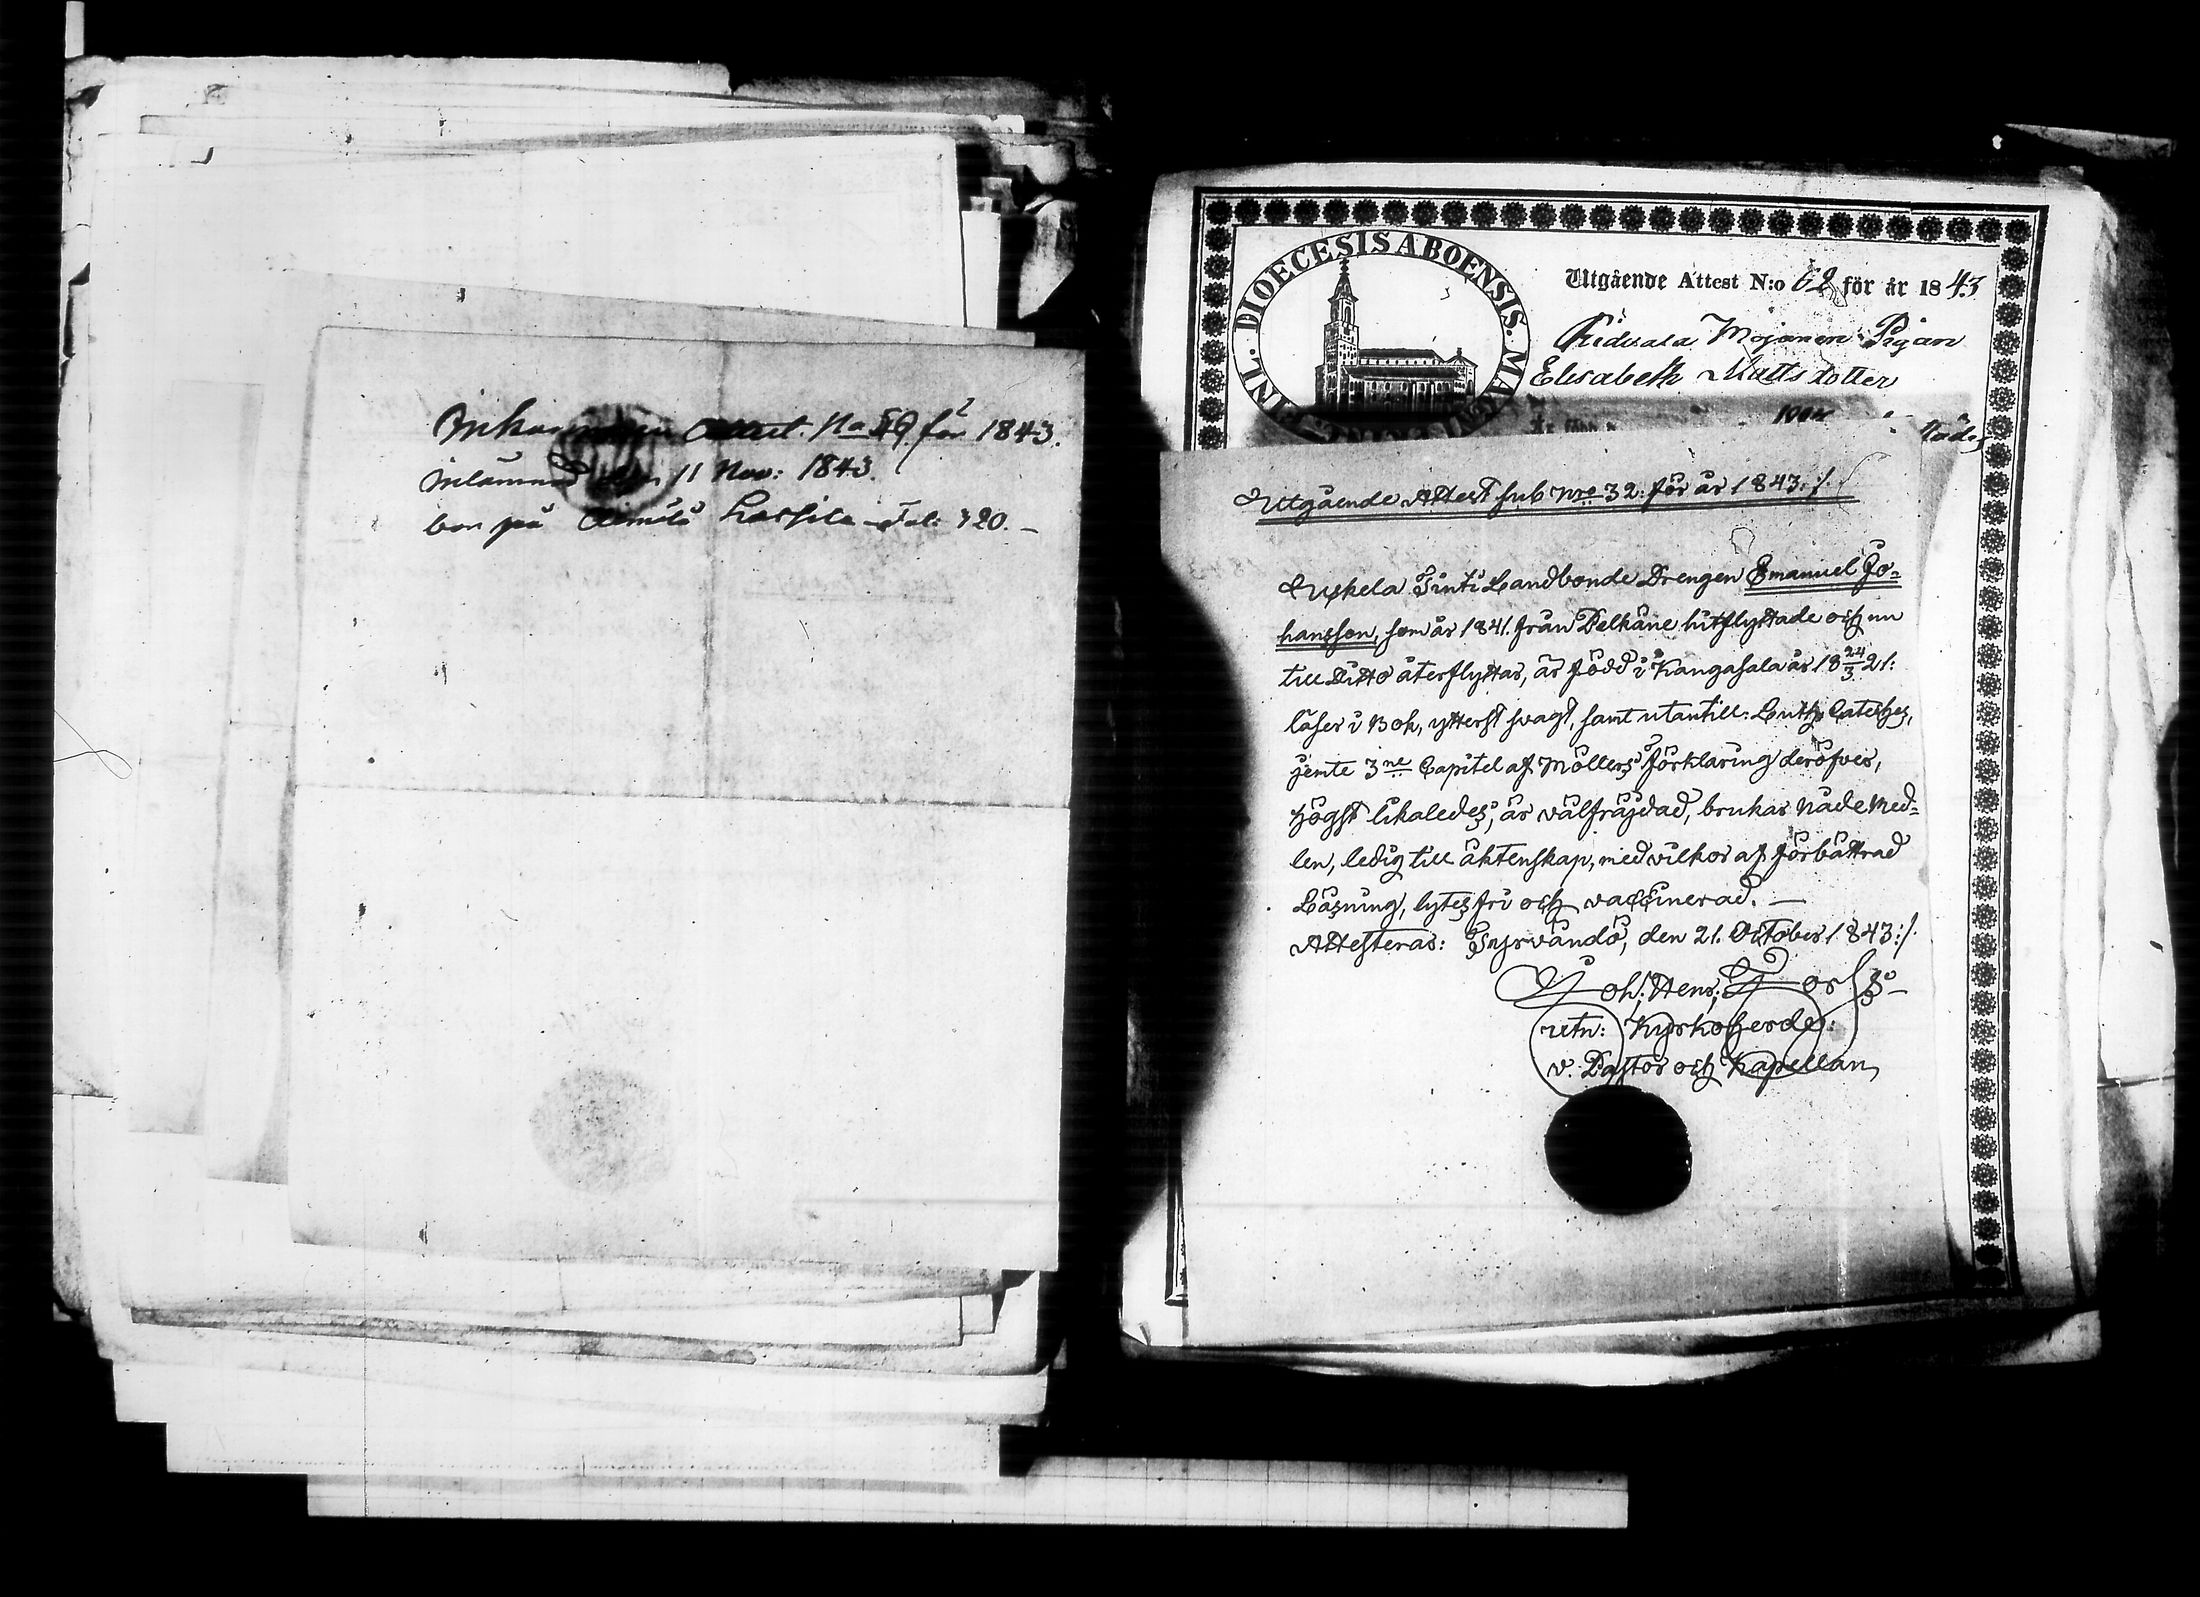 Inkommen Attest. No 59 för 1843.
inlämnad den 11 Nov: 1843.
bor på Lassila Fol: 720.
FINL. DIOECESIS ABOENSIS. MAGN
Utgående Attest N:o 62 för år 1843
Mojanen Pigan
Elisabeth Mattsdotter
Utgående Attest sub Nro 32. för år 1843:/.
Nykela Tinti Landbonde Drengen Emanuel Jo=
hansson, som år 1841. från Pelkäne hitflyttade och nu
till Ditto återflyttar, är född i Kangasala år 18 24/3 21:
läser i Bok, ytterst svagt, samt utantill: Luth: Cateches,
jemte 3ne Capitel af Möllers förklaring deröfver,
högst likaledes, är välfräjdad, brukar Nådemed=
len, ledig till äktenskap, med vilkor af förbättrad
Läsning, lytesfri och vaccinerad. —
Attesteras: Tyrvändö, den 21. October 1843:/.
Joh: Henr:
utn: Kyrkoherde.
v. Pastor och Kapellan